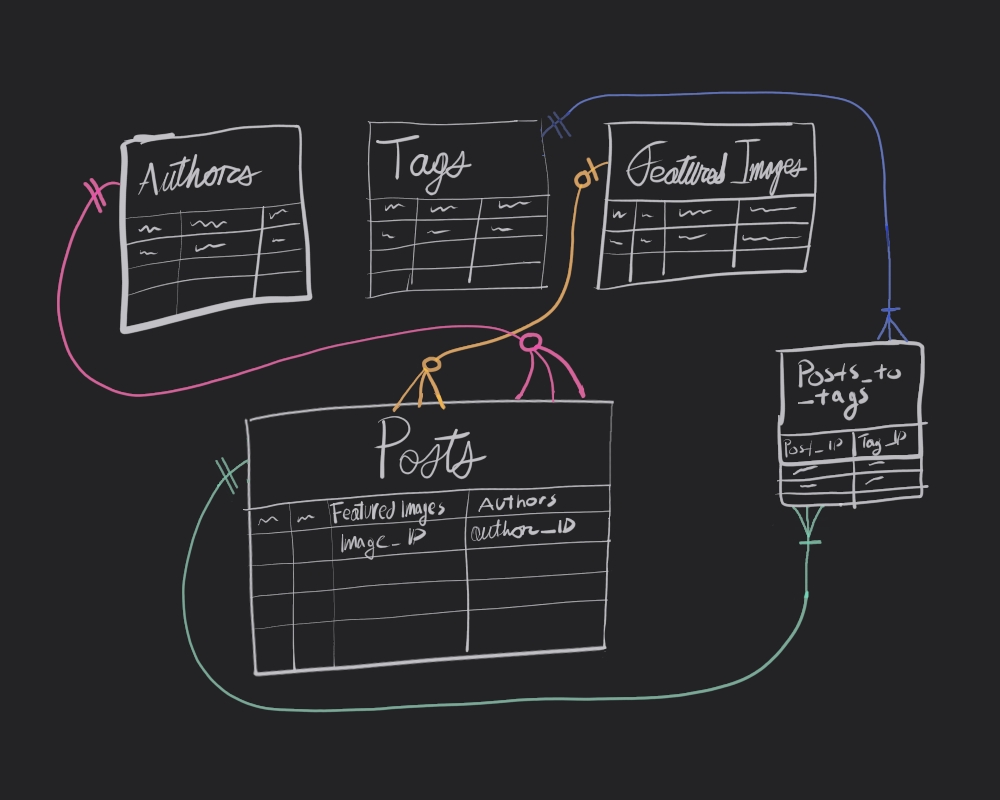 Authors
Tags
Featured Images
Posts_to
_tags
Post_ID Tag_ID
Posts
Featured Images Authors
Image_ID author_ID